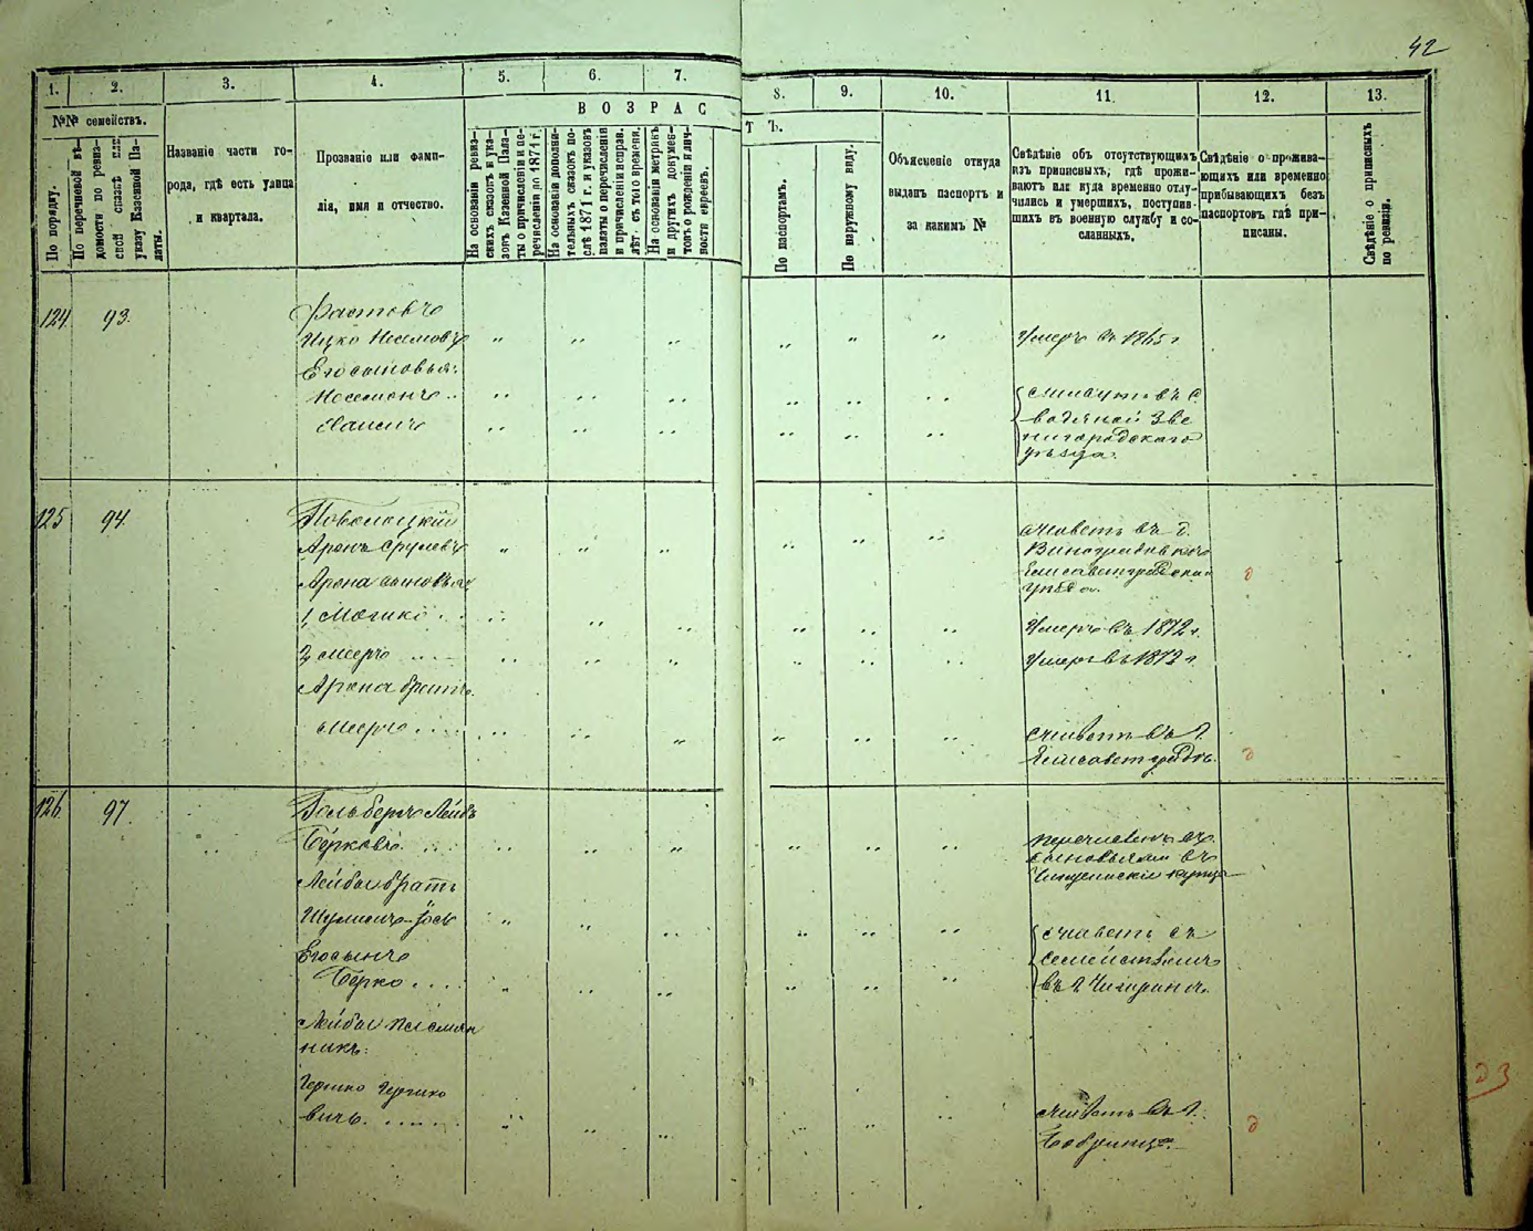 42
1. 2. 3. 4. 5. 6. 7. 8. 9. 10. 11. 12. 13.
№№ семействъ.
По порядку.
По перечневой вѣ-
домости по ревиз-
ской сказкѣ или
указу Казенной Па-
латы.
Названіе части го-
рода, гдѣ есть улица
и квартала.
Прозваніе или фами-
лія, имя и отчество.
ВОЗРАС
Т Ъ.
На основаніи ревиз-
скихъ сказокъ и ука-
зовъ Казенной Пала-
ты о причисленіи и пе-
речисленіи до 1871 г.
На основаніи дополни-
тельныхъ сказокъ по-
слѣ 1871 г. и указовъ
палаты о перечисленіи
и причисленіи исправ.
лѣт. съ того времени.
На основаніи метрикъ
и других. докумен-
товъ о рожденіи и лич-
ности евреевъ.
По паспортамъ.
По наружному виду.
Объясненіе откуда
выданъ паспортъ и
за какимъ №
Свѣдѣніе объ отсутствующихъ
изъ приписныхъ, гдѣ прожи-
ваютъ или куда временно отлу-
чились и умершихъ, поступив-
шихъ въ военную службу и со-
сланныхъ.
Свѣдѣніе о прожива-
ющихъ или временно
прибывающихъ безъ
паспортовъ гдѣ при-
писаны.
Свѣдѣніе о приписныхъ
по ревизіи.
124 93.
Ицко
Умеръ въ 1865 г
Его сыновья:
въ с.
Водяной Зве
нигородскаго
уѣзда.
125 94.
Поволоцкій
Аронъ Срулевъ
живетъ въ
Елисаветградскаго
уѣзда.
Арона сыновья
1, Мошко
Умеръ въ 1872 г.
2, Мееръ
Умеръ въ 1872 г
Арона братъ
Мееръ
живетъ въ г.
Елисаветградѣ.
126 97.
Гольбергъ Лейба
Берковъ
перечисленъ съ
сыновьями въ
Лейбы братъ
Шулимъ-Іосъ
живетъ съ
Его сынъ
семействомъ
Берко
въ г. Чигиринѣ.
Лейбы племян
никъ:
Гершко Гершко
вичъ.
живетъ въ г.
Бобринцѣ.